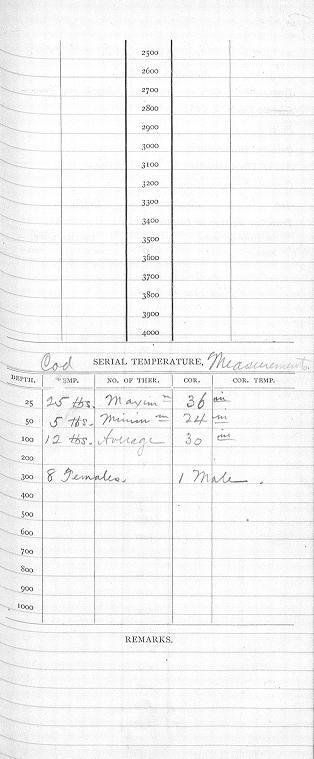 2500
2600
2700
2800
2900
3000
3100
3200
3300
3400
3500
3600
3700
3800
3900
4000
Cod SERIAL TEMPERATURE, Measurements.
DEPTH. TEMP. NO. OF THER. COR. COR. TEMP.
25 25 lbs. Maximm 36 in
50 5 lbs. Minimm 24 in
100 12 lbs. Average 30 in
200
300 8 Females. 1 Male.
400
500
600
700
800
900
1000
REMARKS.